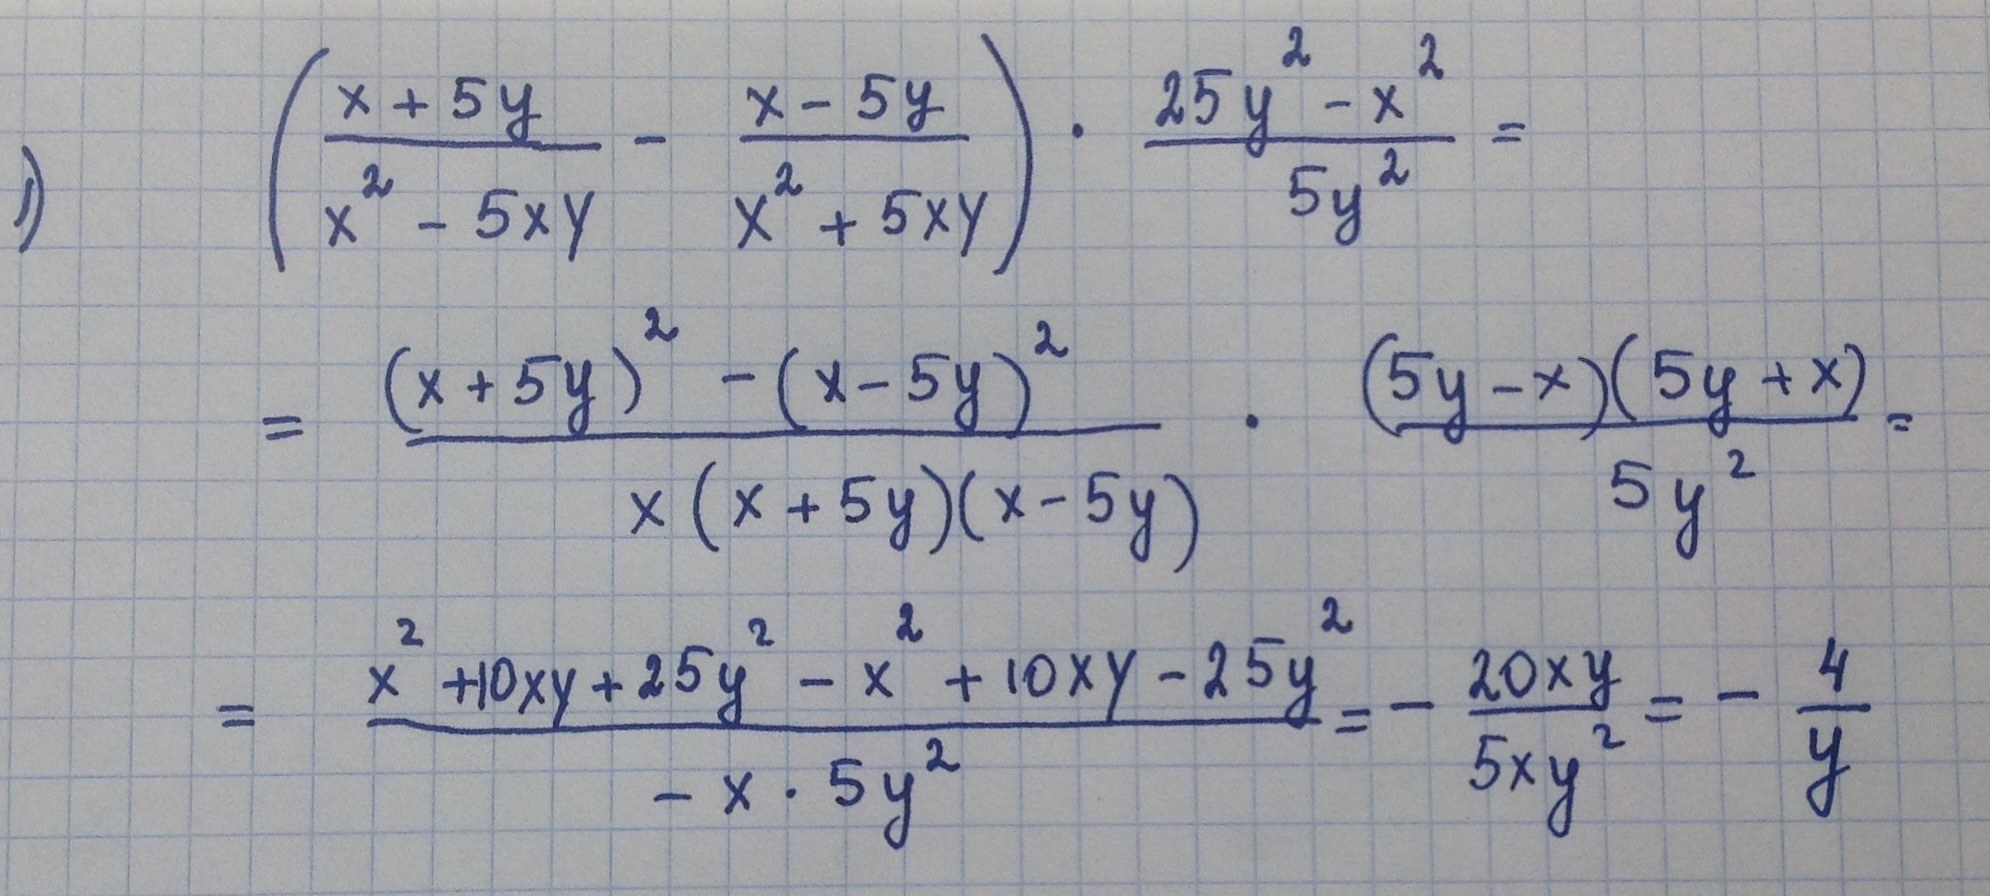 1) ((x + 5y)/(x² - 5xy) - (x - 5y)/(x² + 5xy)) · (25y² - x²)/(5y²) =
= ((x + 5y)² - (x - 5y)²)/(x(x + 5y)(x - 5y)) · ((5y - x)(5y + x))/(5y²) =
= (x² + 10xy + 25y² - x² + 10xy - 25y²)/(-x · 5y²) = - (20xy)/(5xy²) = - 4/y